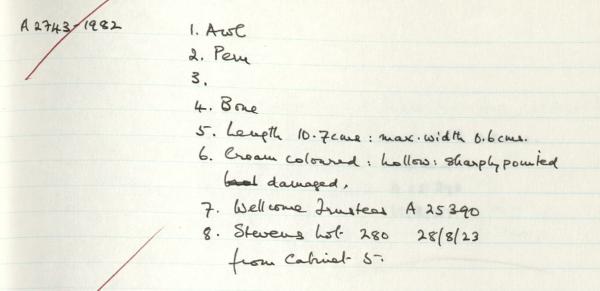 A 2743-1982
1. Awl
2. Peru
3.
4. Bone
5. Length 10.7cms : max. width 0.6cms.
6. Cream coloured : hollow : sharply pointed
damaged.
7. Wellcome Trustees A 25390
8. Stevens Lot 280 28/8/23
from Cabinet 5.